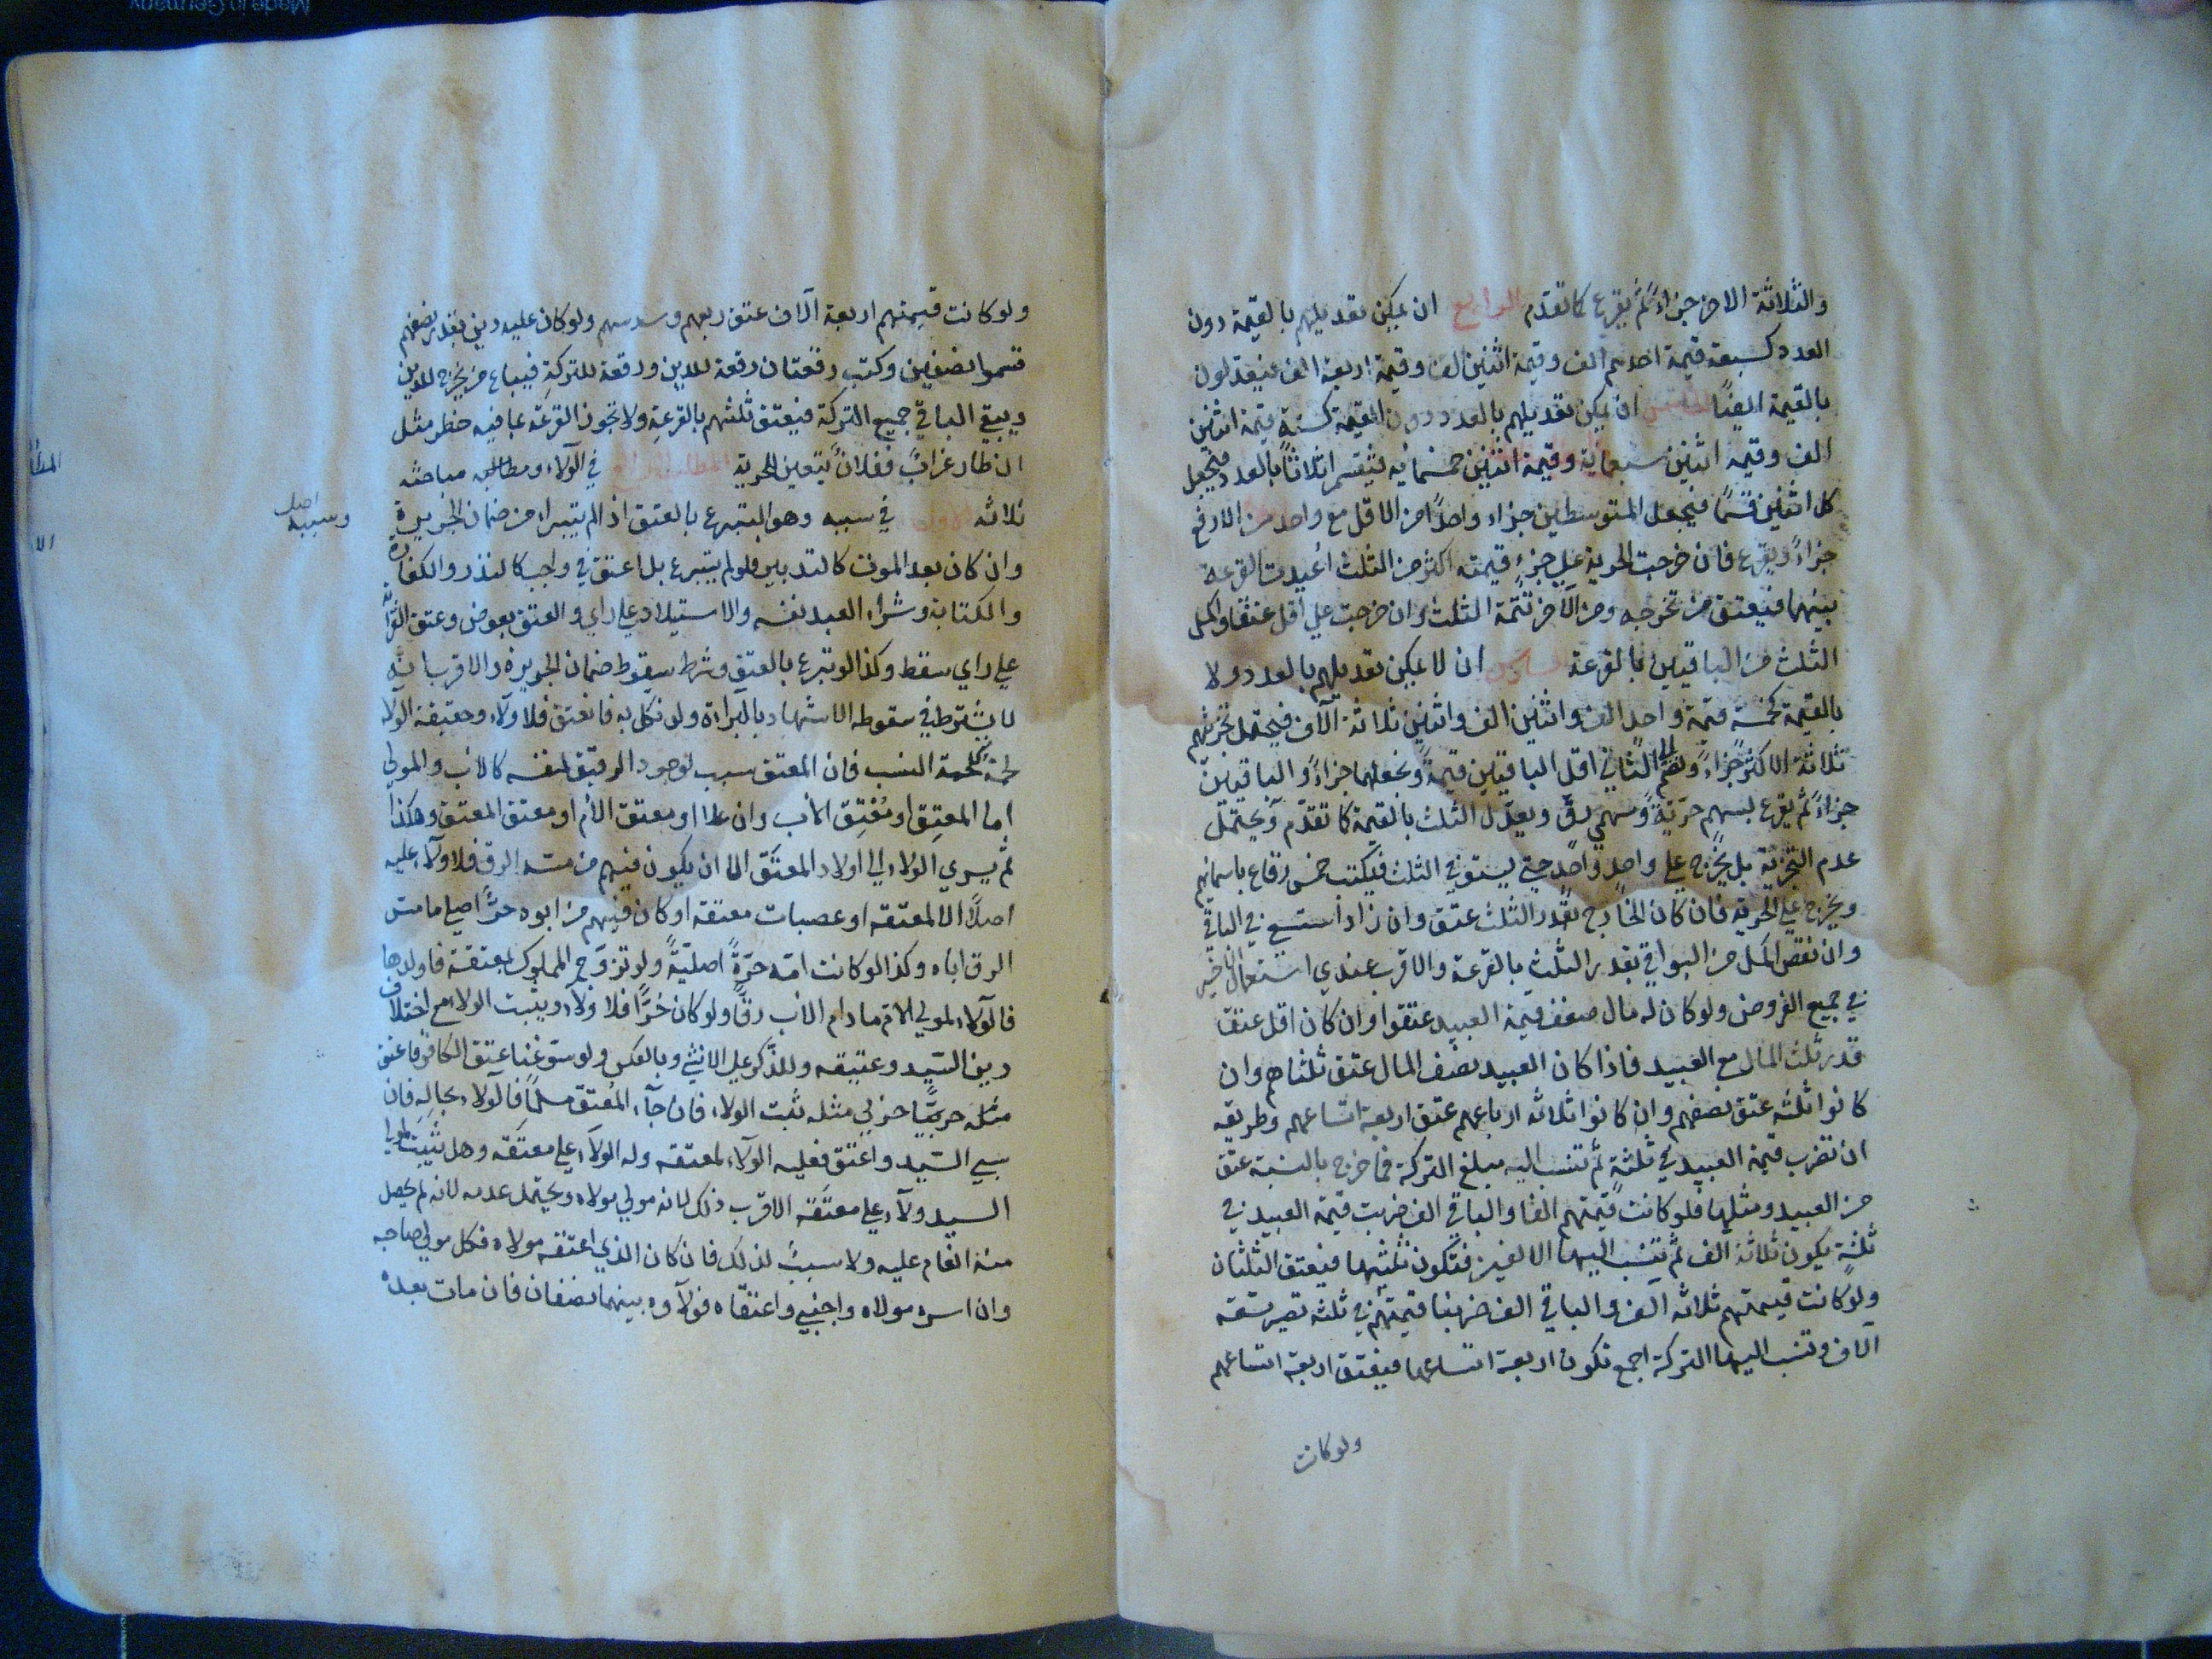 والثلاثة الاخر جزاءً ثم يقرع كما تقدم الرابع ان يمكن تعديلهم بالقيمة دون
العدد كسبعة قيمة احدهم الف وقيمة اثنين الف وقيمة اربعة الف فيعدلون
بالقيمة ايضًا الخامس ان يمكن تعديلهم بالعدد دون القيمة كستة قيمة اثنين
الف وقيمه اثنين سبعمائة وقيمة اثنين خمسمائه فيقسم اثلاثا بالعدد فيجعل
كل اثنين قسمًا فيجعل المتوسطين جزاء واحدًا من الاقل مع واحد من الارفع
جزاءً ويقرع فان خرجت الحرية علي جزءٍ قيمته اكثر من الثلث اُعيدت القرعة
بينهما فيعتق من تخرجه ومن الآخر تتمة الثلث وان خرجت علي اقل عتقا واكمل
الثلث من الباقيين بالقرعة السادس ان لا يمكن تعديلهم بالعدد ولا
بالقيمة كخمسة قيمة واحد الف واثنين الف واثنين ثلاثة الآف فيحتمل تجزئتهم
ثلاثة الاكثر جزاءً ويضم الي الثاني اقل الباقيين قيمةً ونجعلهما جزاءً والباقيين
جزاءً ثم يقرع بسهم حرّيةً وسهمي رقّ ويعدّل الثلث بالقيمة كما تقدّم ويحتمل
عدم التجزية بل يُخرج علي واحدٍ واحدٍ حتي يستوفي الثلث فيكتب خمس رقاع باسمائهم
ويخرج علي الحرية فان كان الخارج بقدر الثلث عتق وان زاد استسعي في الباقي
وان نقص اكمل من البواقي بقدر الثلث بالقرعة والاقرب عندي استعمال الاخير
في جميع الفروض ولو كان له مال ضعف قيمة العبيد عتقوا وان كان اقل عتق
قدر ثلث المال مع العبيد فاذا كان العبيد نصف المال عتق ثلثاهم وان
كانوا ثلثه عتق نصفهم وان كانوا ثلاثه ارباعهم عتق اربعة اتساعهم وطريقه
ان تضرب قيمة العبيد في ثلثةٍ ثم تنسب اليه مبلغ التركة فما خرج بالنسبة عتق
من العبيد ومثلها فلو كانت قيمتهم الفا والباقي الف ضربت قيمة العبيد في
ثلثةٍ يكون ثلاثة الف ثم تنسب اليها الالفين فتكون ثلثيها فيعتق الثلثان
ولو كانت قيمتهم ثلاثه آلف والباقي الف ضربنا قيمتهم في ثلثه تصير تسعة
آلاف وتنسب اليها التركة اجمع تكون اربعة اتساعها فيعتق اربعة اتساعهم
ولو كانت
ولو كانت قيمتهم اربعة آلاف عتق ربعهم وسدسهم ولو كان عليه دين بقدر نصفهم
قسموا نصفين وكتب رقعتان رقعة للدين ورقعة للتركة فيباع من يخرج للدين
ويبقي الباقي جميع التركة فيعتق ثلثهم بالقرعة ولا تجوز القرعة بما فيه خطر مثل
ان طار غرابٌ ففلانٌ يتعين للحرية المطلب الرابع في الولاء ومطالبه مباحثه
ثلاثه الاول في سببه وهو التبرع بالعتق اذا لم يتبراء من ضمان الجريرة
وسببه اصل
وان كان بعد الموت كالتدبير فلو لم يتبرع بل اعتق في واجب كالنذر والكفارة
والكتابة وشراء العبد نفسه والاستيلاد علي راي والعتق بعوض وعتق القرابة
علي راي سقط وكذا لو تبرع بالعتق وشرط سقوط ضمان الجريرة والاقرب انه
لا يشترط في سقوطه الاشهاد بالبراءة ولو نكل به فانعتق فلا ولآء وحقيقة الولاء
لحمة كلحمة النسب فان المعتق سبب لوجود الرقيق لنفسه كالاب والمولي
اما المعتِق او مُعْتِق الاب وان علا او معتق الأم او معتق المعتق وهكذا
ثم يسري الولاء الي اولاد المعتَق الا ان يكون فيهم من مسّه الرق فلا ولآء عليه
اصلًا الا لمعتقه او عصبات معتقه او كان فيهم من ابوه حرٌّ اصلي ما مس
الرق اباه وكذا لو كانت امّه حرّةً اصليّةً ولو تزوّج المملوك بمعتقة فاولدها
فالولآء لمولي الام ما دام الاب رقّا ولو كان حُرًّا فلا ولآء ويثبت الولاء مع اختلاف
دين السّيد وعتيقه وللذّكر علي الانثي وبالعكس ولو سوّغنا عتق الكافر فاعتق
مثله حربيًّا حربي مثله ثبت الولاء فان جآء المُعتق مسلمًا فالولآء بحاله فان
سبي السّيد واعتق فعليه الولآء لمعتقه وله الولآء علي معتَقه وهل يثبت لمولي
السيد ولآء علي معتَقه الاقرب ذلك لانه مولي مولاه ويحتمل عدمه لانه لم يحصل
منه انعام عليه ولا سببٌ لذلك فان كان الذي اعتقه مولاه فكل مولي صاحبه
وان اسره مولاه واجنبي واعتقاه فولآوه بينهما نصفان فان مات بعده